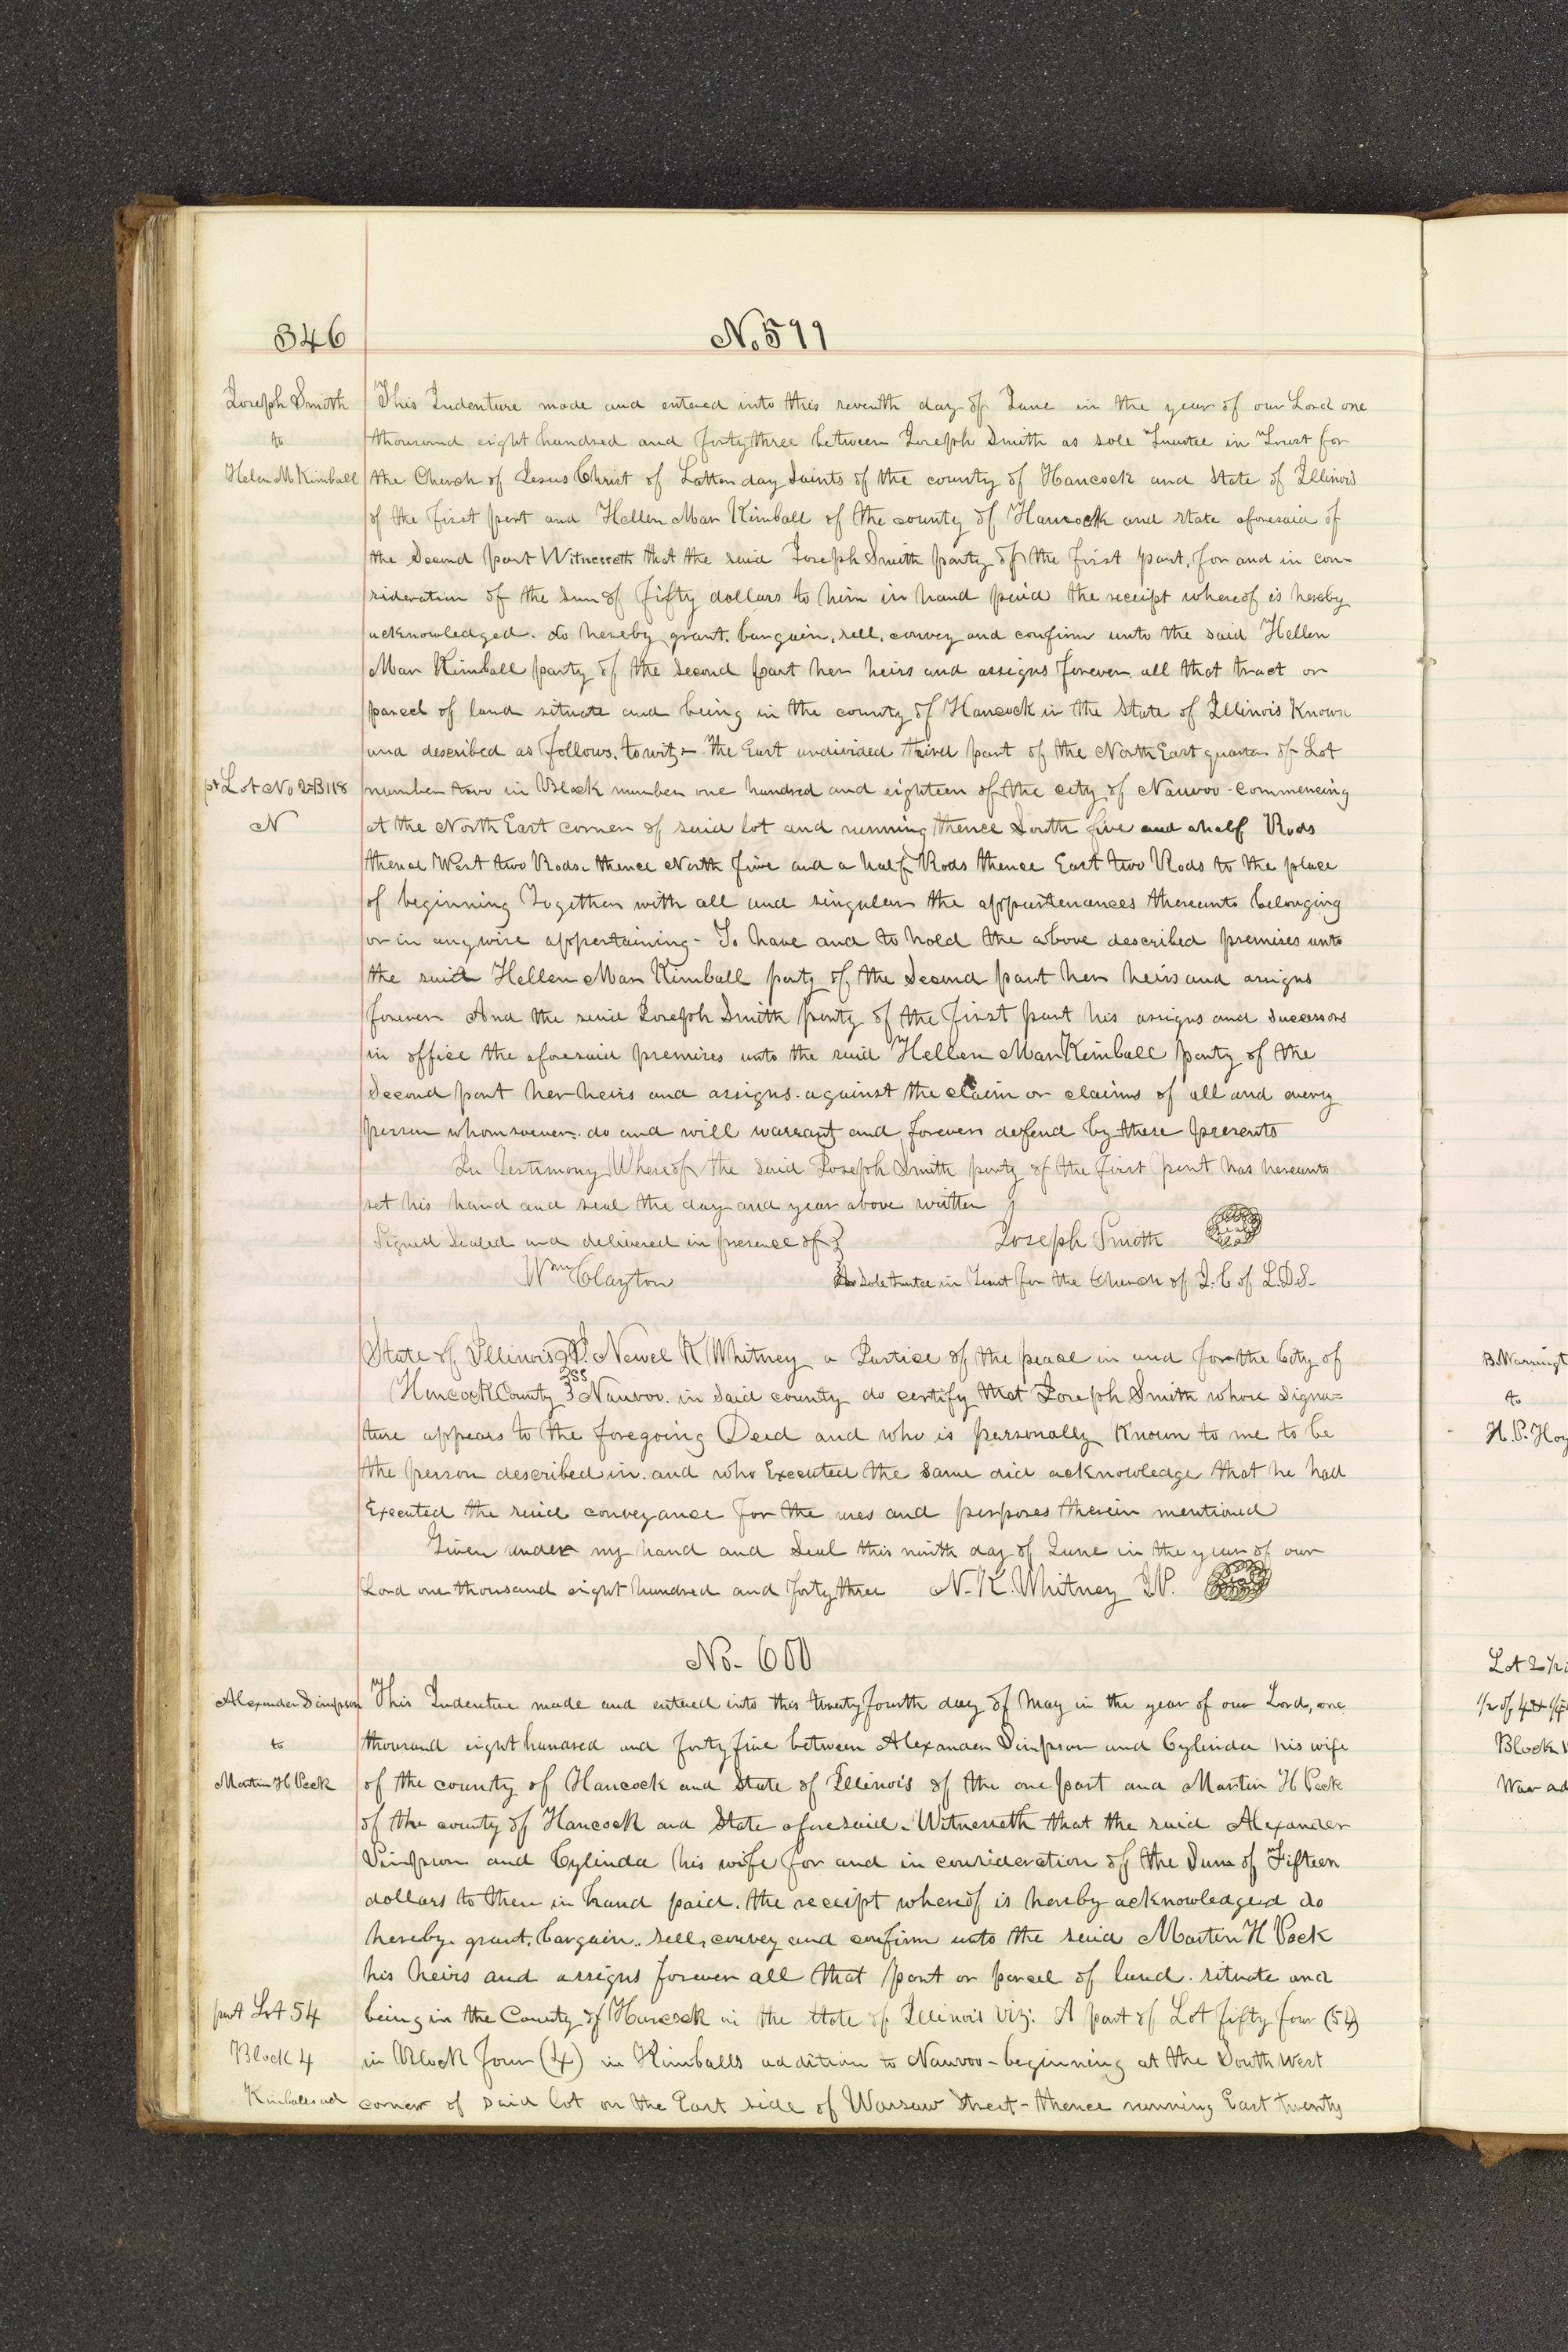 346
No. 599
Joseph Smith
to
Helen M Kimball
This Indenture made and entered into this seventh day of June in the year of our Lord one
thousand eight hundred and forty three between Joseph Smith as sole Trustee in Trust for
the Church of Jesus Christ of Latter day Saints of the county of Hancock and State of Illinois
of the first part and Hellen Mar Kimball of the county of Hancock and state aforesaid of
the Second part Witnesseth that the said Joseph Smith party of the first part, for and in con-
sideration of the sum of fifty dollars to him in hand paid the receipt whereof is hereby
acknowledged. do hereby grant. bargain, sell, convey and confirm unto the said Hellen
Mar Kimball party of the second part her heirs and assigns forever. all that tract or
parcel of land situate and being in the county of Hancock in the State of Illinois Known
and described as follows. to wit;- The East undivided third part of the North East quarter of Lot
pt Lot No 2=B118
N
number two in Block number one hundred and eighteen of the city of Nauvoo - Commencing
at the North East corner of said lot and running thence South five and a half Rods
thence West two Rods. thence North five and a half Rods thence East two Rods to the place
of beginning Together with all and singular the appurtenances thereunto belonging
or in anywise appertaining - To have and to hold the above described premises unto
the said Hellen Mar Kimball party of the Second part her heirs and assigns
forever And the said Joseph Smith party of the first part his assigns and successors
in office the aforesaid premises unto the said Hellen Mar Kimball party of the
Second part her heirs and assigns. against the claim or claims of all and every
person whomsoever. do and will warrant and forever defend by these presents
In Testimony Whereof the said Joseph Smith party of the first part has hereunto
set his hand and seal the day and year above written
Signed Sealed and delivered in presence of } Joseph Smith Seal
Wm Clayton As Sole trustee in Trust for the Church of J. C of L.D.S.
State of Illinois } I. Newel K Whitney a Justice of the peace in and for the City of
Hancock County } SS Nauvoo. in said county do certify that Joseph Smith whose Signa=
ture appears to the foregoing Deed and who is personally Known to me to be
the person described in. and who Executed the same did acknowledge that he had
Executed the said conveyance for the uses and purposes therein mentioned
Given under my hand and Seal this ninth day of June in the year of our
Lord one thousand eight hundred and forty three N. K. Whitney J.P. Seal
No- 600
Alexander Simpson
to
Martin H Peck
This Indenture made and entered into this twenty fourth day of May in the year of our Lord, one
thousand eight hundred and forty five between Alexander Simpson and Cylinda his wife
of the county of Hancock and State of Illinois of the one part and Martin H Peck
of the county of Hancock and State aforesaid. Witnesseth that the said Alexander
Simpson and Cylinda his wife for and in consideration of the Sum of Fifteen
dollars to them in hand paid. the receipt whereof is hereby acknowledged do
hereby. grant. bargain.. sell, convey and confirm unto the said Martin H Peck
his heirs and assigns forever all that part or parcel of land. situate and
part Lot 54
Block 4
Kimballs ad
being in the County of Hancock in the State of Illinois Viz: A part of Lot fifty four (54)
in Block four (4) in Kimballs addition to Nauvoo - beginning at the South West
corner of said lot on the East side of Warsaw Street - thence running East twenty
B. Warringt
to
H. P. Hoy
Lot 2 1/2
1/2 of 4
Block
War ad